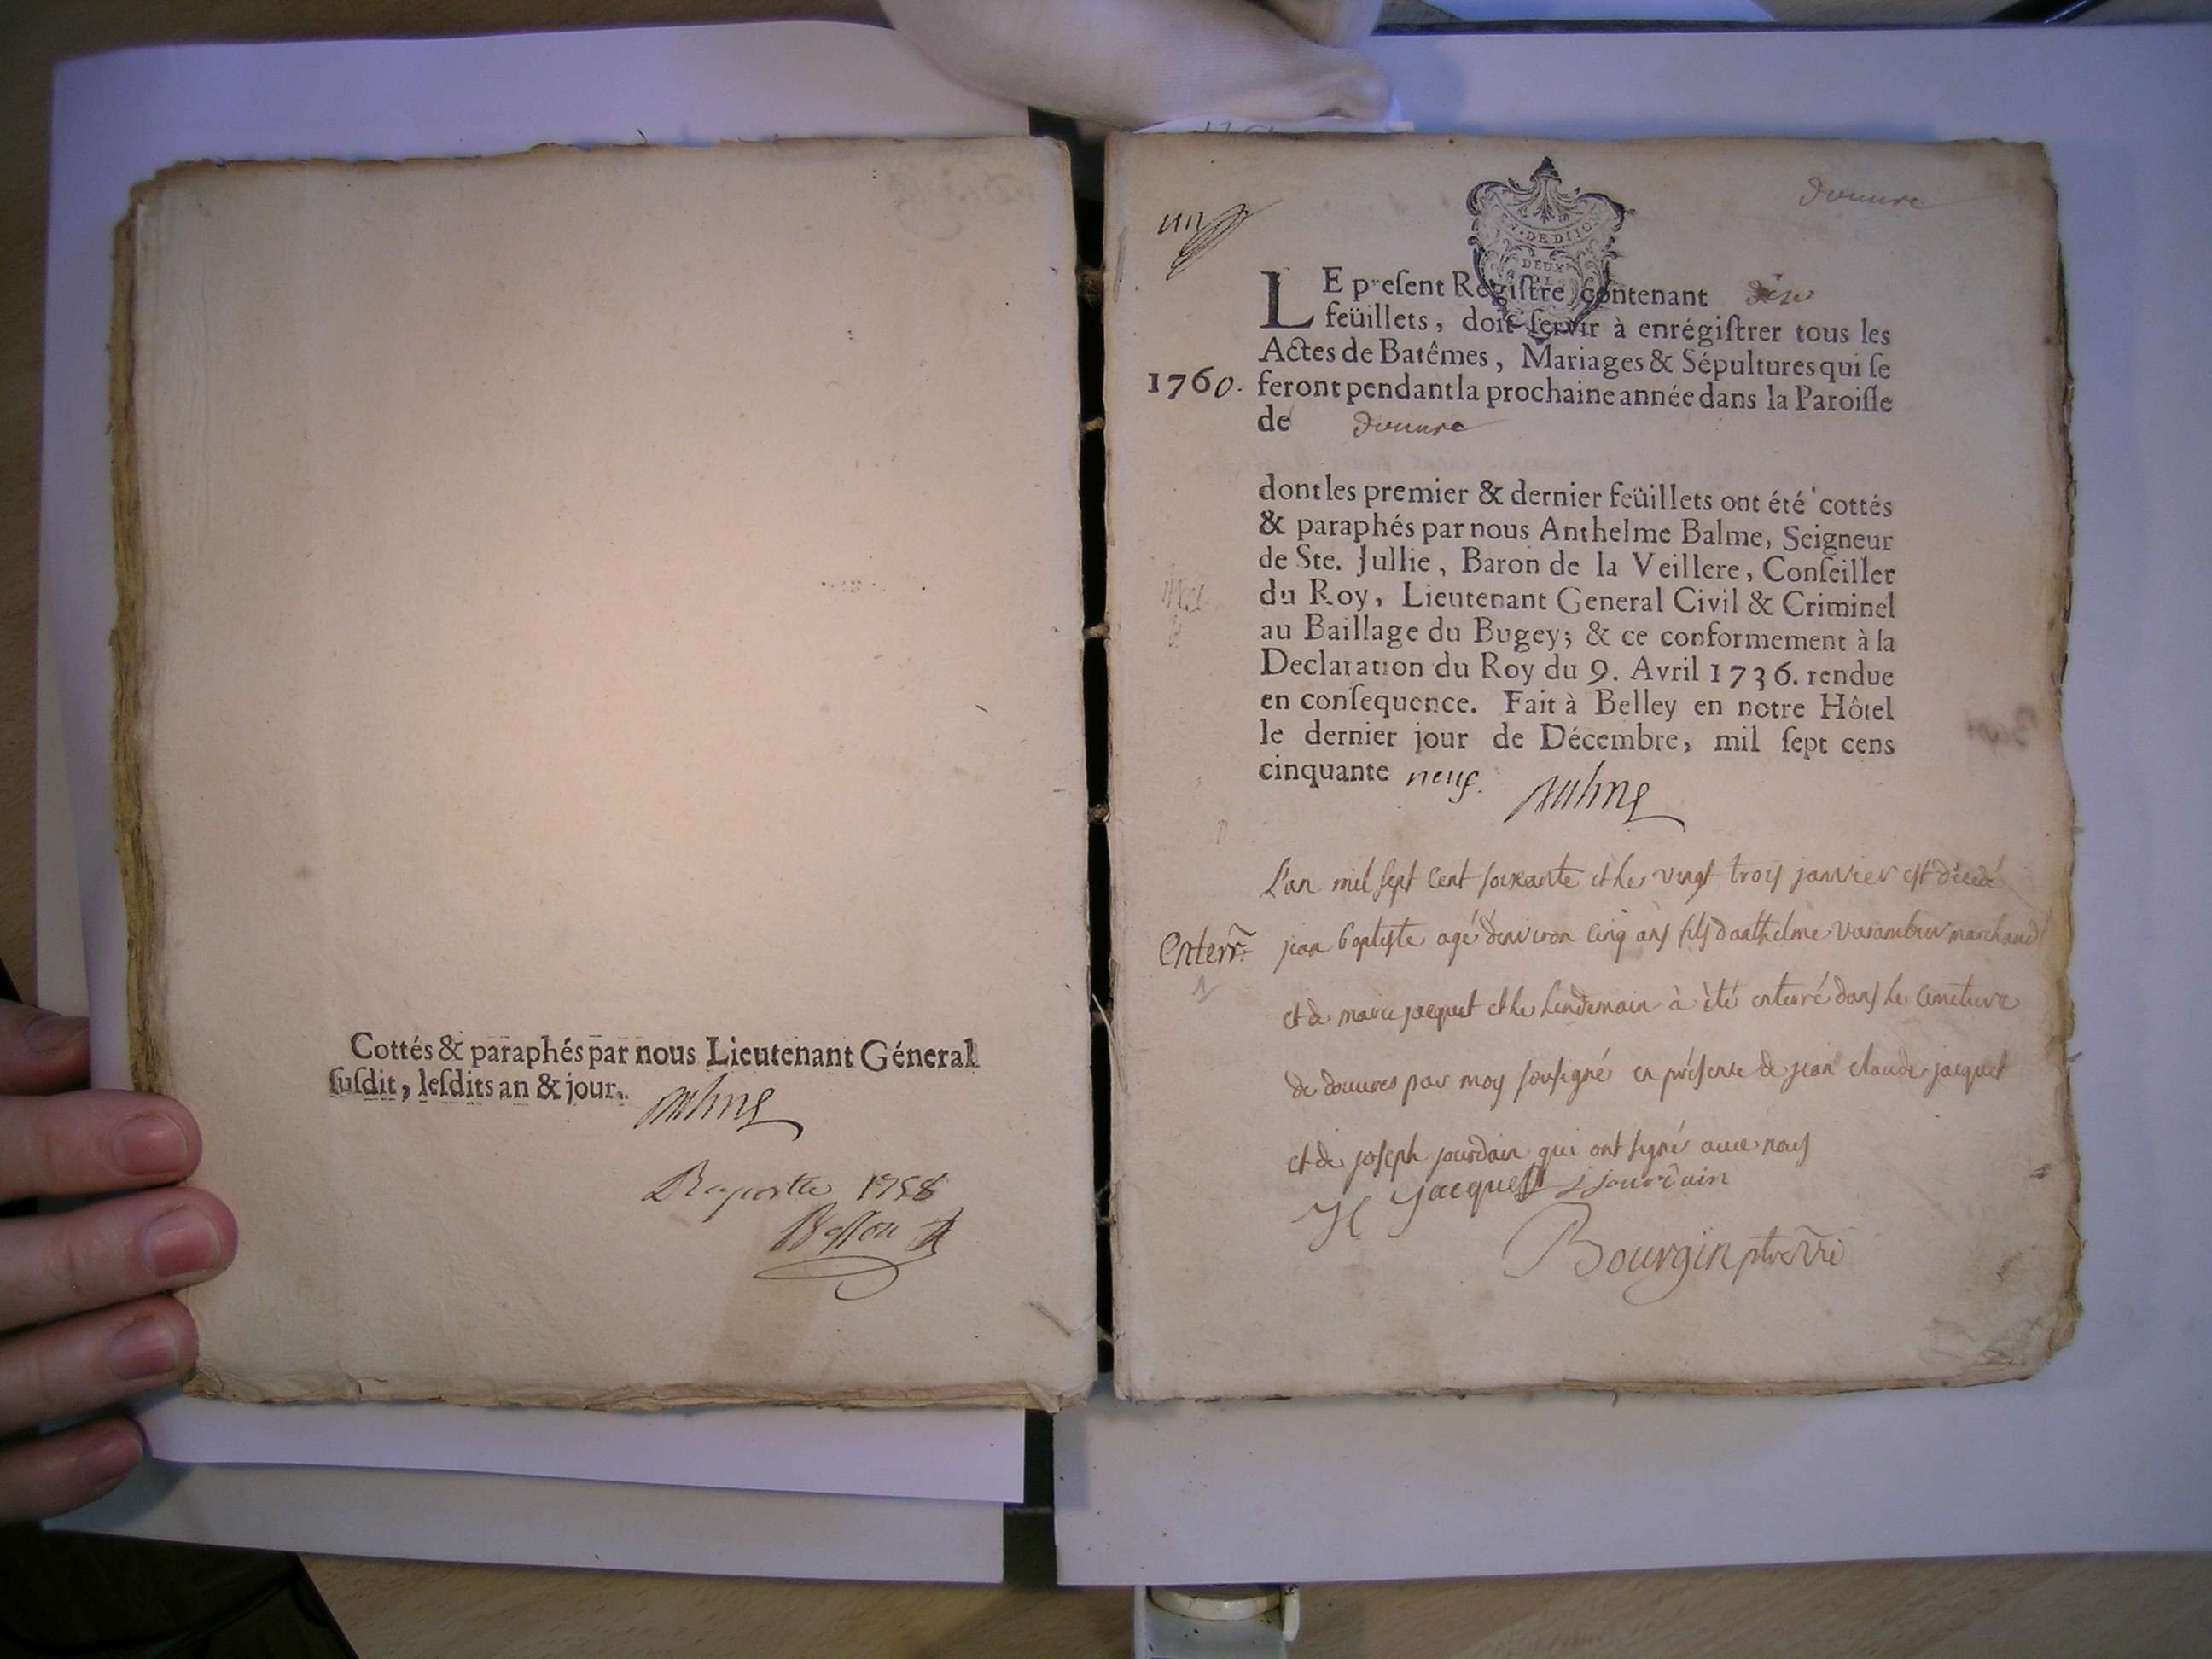 Cottés & paraphés par nous Lieutenant Géneral
ſuſdit, leſdits an & jour.
Balme
Raporté 1758
un
douure
. DE DIJO
DEUX
LE preſent Regiſtre contenant dix
feüillets, doit ſervir à enrégiſtrer tous les
Actes de Batêmes, Mariages & Sépultures qui ſe
1760. feront pendant la prochaine année dans la Paroiſſe
de douure
dont les premier & dernier feüillets ont été cottés
& paraphés par nous Anthelme Balme, Seigneur
de Ste. Jullie, Baron de la Veillere, Conſeiller
du Roy, Lieutenant General Civil & Criminel
au Baillage du Bugey; & ce conformement à la
Declaration du Roy du 9. Avril 1736. rendue
en conſequence. Fait à Belley en notre Hôtel
le dernier jour de Décembre, mil ſept cens
cinquante neuf. Balme
L'an mil sept cent soixante et le vingt trois janvier est décedé
Enterr. jean baptiste agé d'environ cinq ans fils d'anthelme varambier marchand
1
et de marie jacquet et le lendemain à été enterré dans le cimetiere
de douures par moy soussigné en présence de jean claude jacquet
et de joseph jourdain qui ont signé avec nous
JC jacquet j jourdain
Bourgin ptre vic